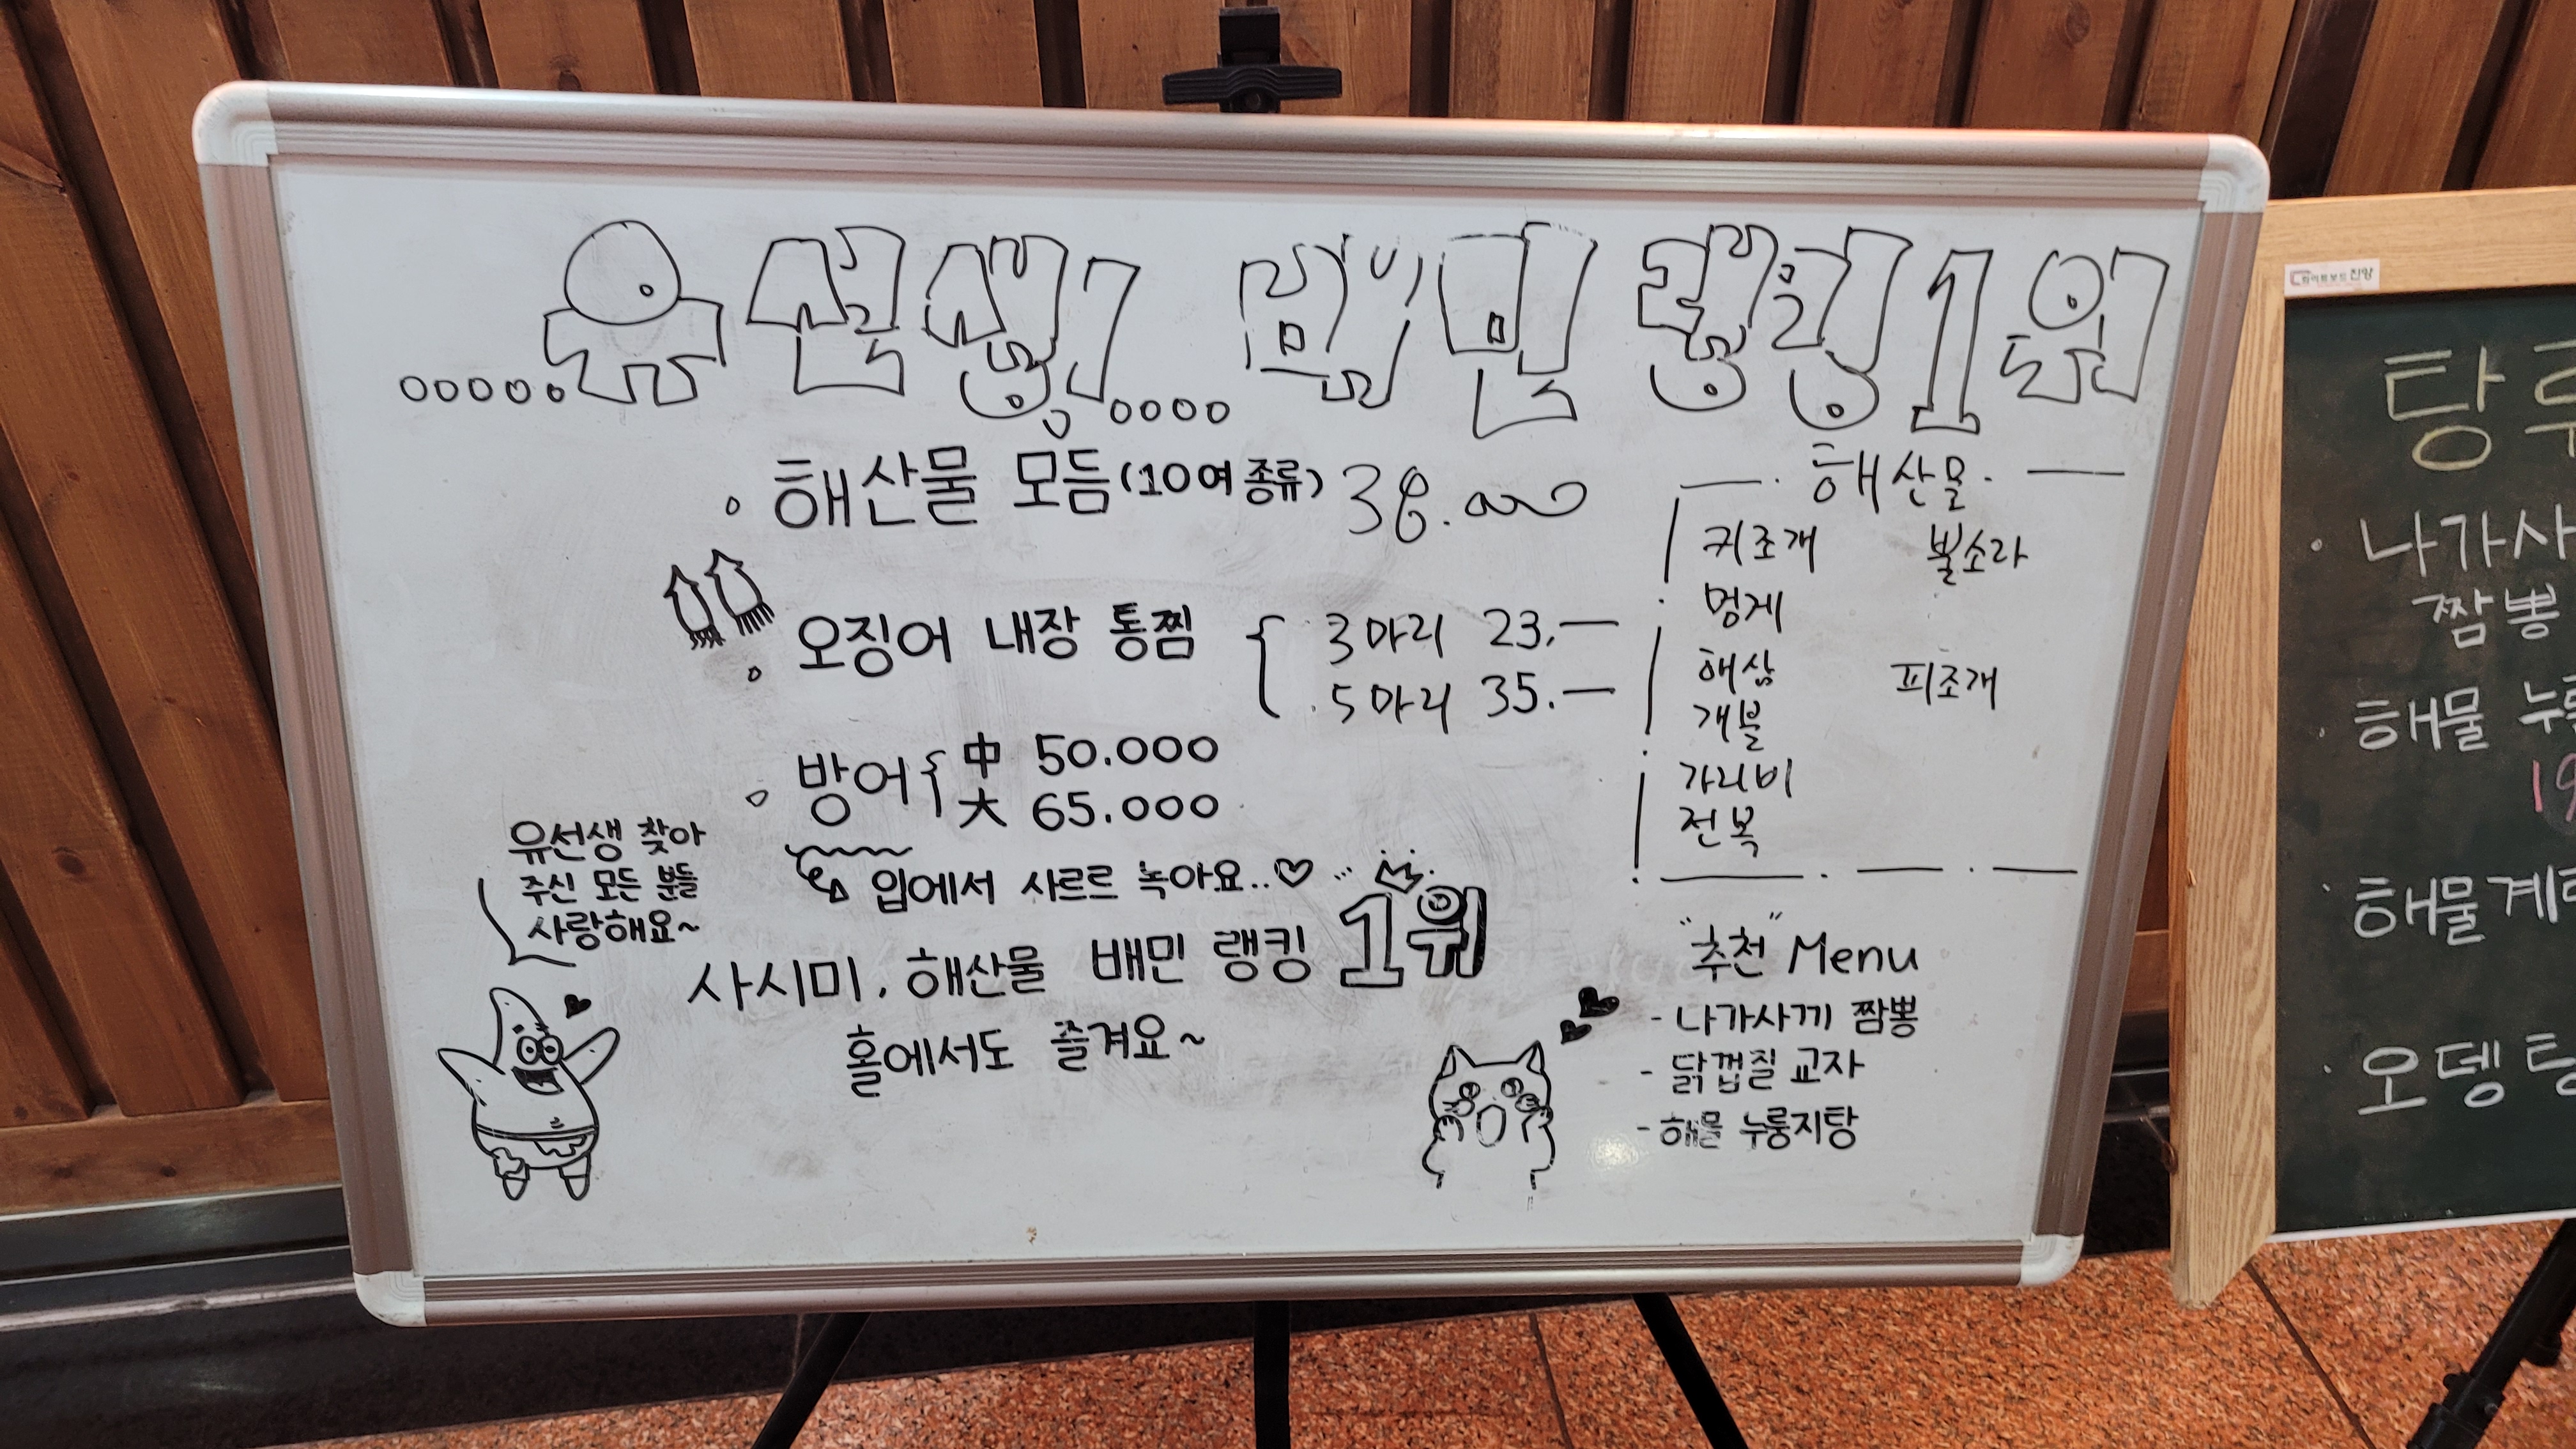 유선생 배민 랭킹 1위
해산물 모듬(10여종류) 38.000
오징어 내장 통찜
3마리 23.—
5마리 35.—
방어
中 50.000
大 65.000
입에서 사르르 녹아요..♡
사시미, 해산물 배민 랭킹 1위
홀에서도 즐겨요~
유선생 찾아
주신 모든 분들
사랑해요~
해산물
키조개 뿔소라
멍게
해삼 피조개
개불
가리비
전복
"추천" Menu
- 나가사끼 짬뽕
- 닭껍질 교자
- 해물 누룽지탕
화이트보드 칠판
탕
나가사
짬뽕
해물 누룽
19
해물계란
오뎅탕